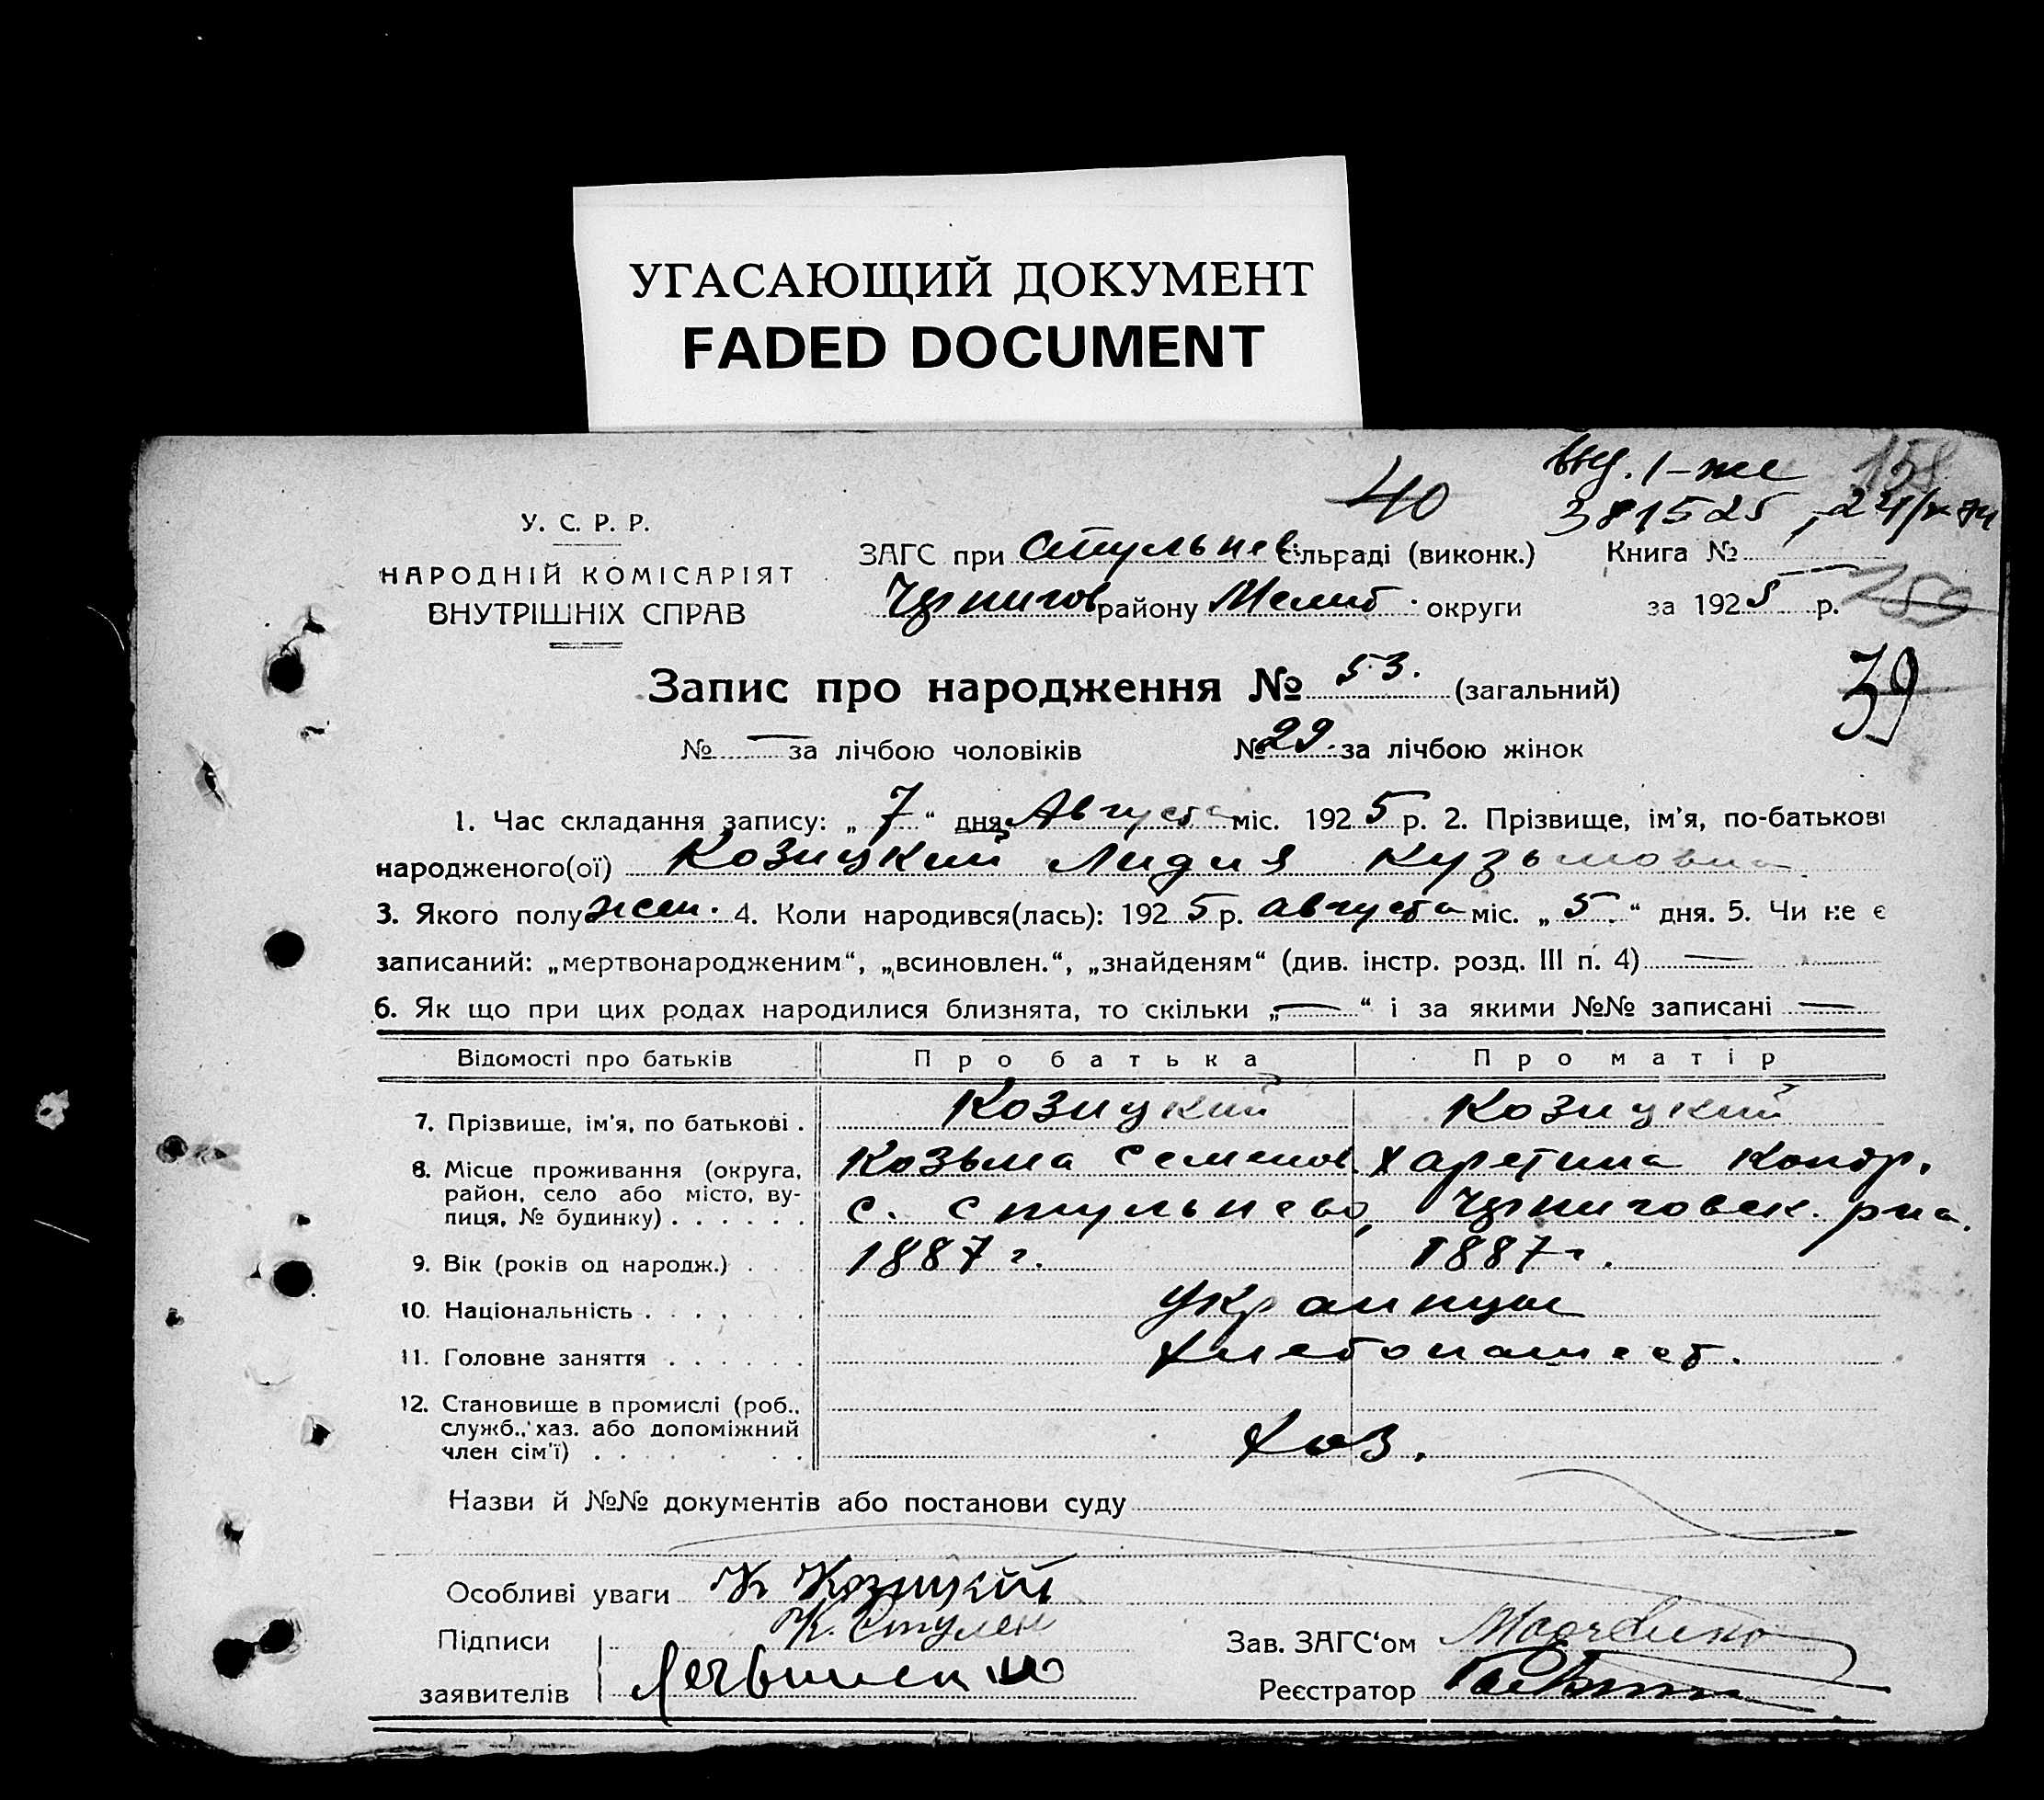 УГАСАЮЩИЙ ДОКУМЕНТ
FADED DOCUMENT
158
40
381525
У. С. Р. Р.
НАРОДНІЙ КОМІСАРІЯТ
ВНУТРІШНІХ СПРАВ
ЗАГС при Стульнев. сільраді (виконк.) Книга №
Чернигов району Мелит. округи за 1925 р.
39
Запис про народження № 53. (загальний)
№ — за лічбою чоловіків № 29. за лічбою жінок
1. Час складання запису: „7“ дня Августа міс. 1925 р. 2. Прізвище, ім'я, по-батькові
народженого(ої) Козицкий Лидия Кузьмовна
3. Якого полу жен. 4. Коли народився(лась): 1925 р. августа міс. „5.“ дня. 5. Чи не є
записаний: „мертвонародженим“, „всиновлен.“, „знайденям“ (див. інстр. розд. III п. 4) —
6. Як що при цих родах народилися близнята, то скільки „—“ і за якими №№ записані —
Відомості про батьків Про батька Про матір
7. Прізвище, ім'я, по батькові . Козицкий Козицкий
Козьма Семенов. Харетина Кондр.
8. Місце проживання (округа,
район, село або місто, ву-
лиця, № будинку) . . . . . . с. Стульнево, Черниговск. рна.
9. Вік (років од народж.) . . . 1887 г. 1887 г.
10. Національність . . . . . . Украинцы
11. Головне заняття . . . . . . Хлебопашест.
12. Становище в промислі (роб.,
служб., хаз. або допоміжний
член сім'ї) . . . . . . Хоз.
Назви й №№ документів або постанови суду
Особливі уваги К Козицкій
Підписи
заявителів
Зав. ЗАГС‘ом
Реєстратор